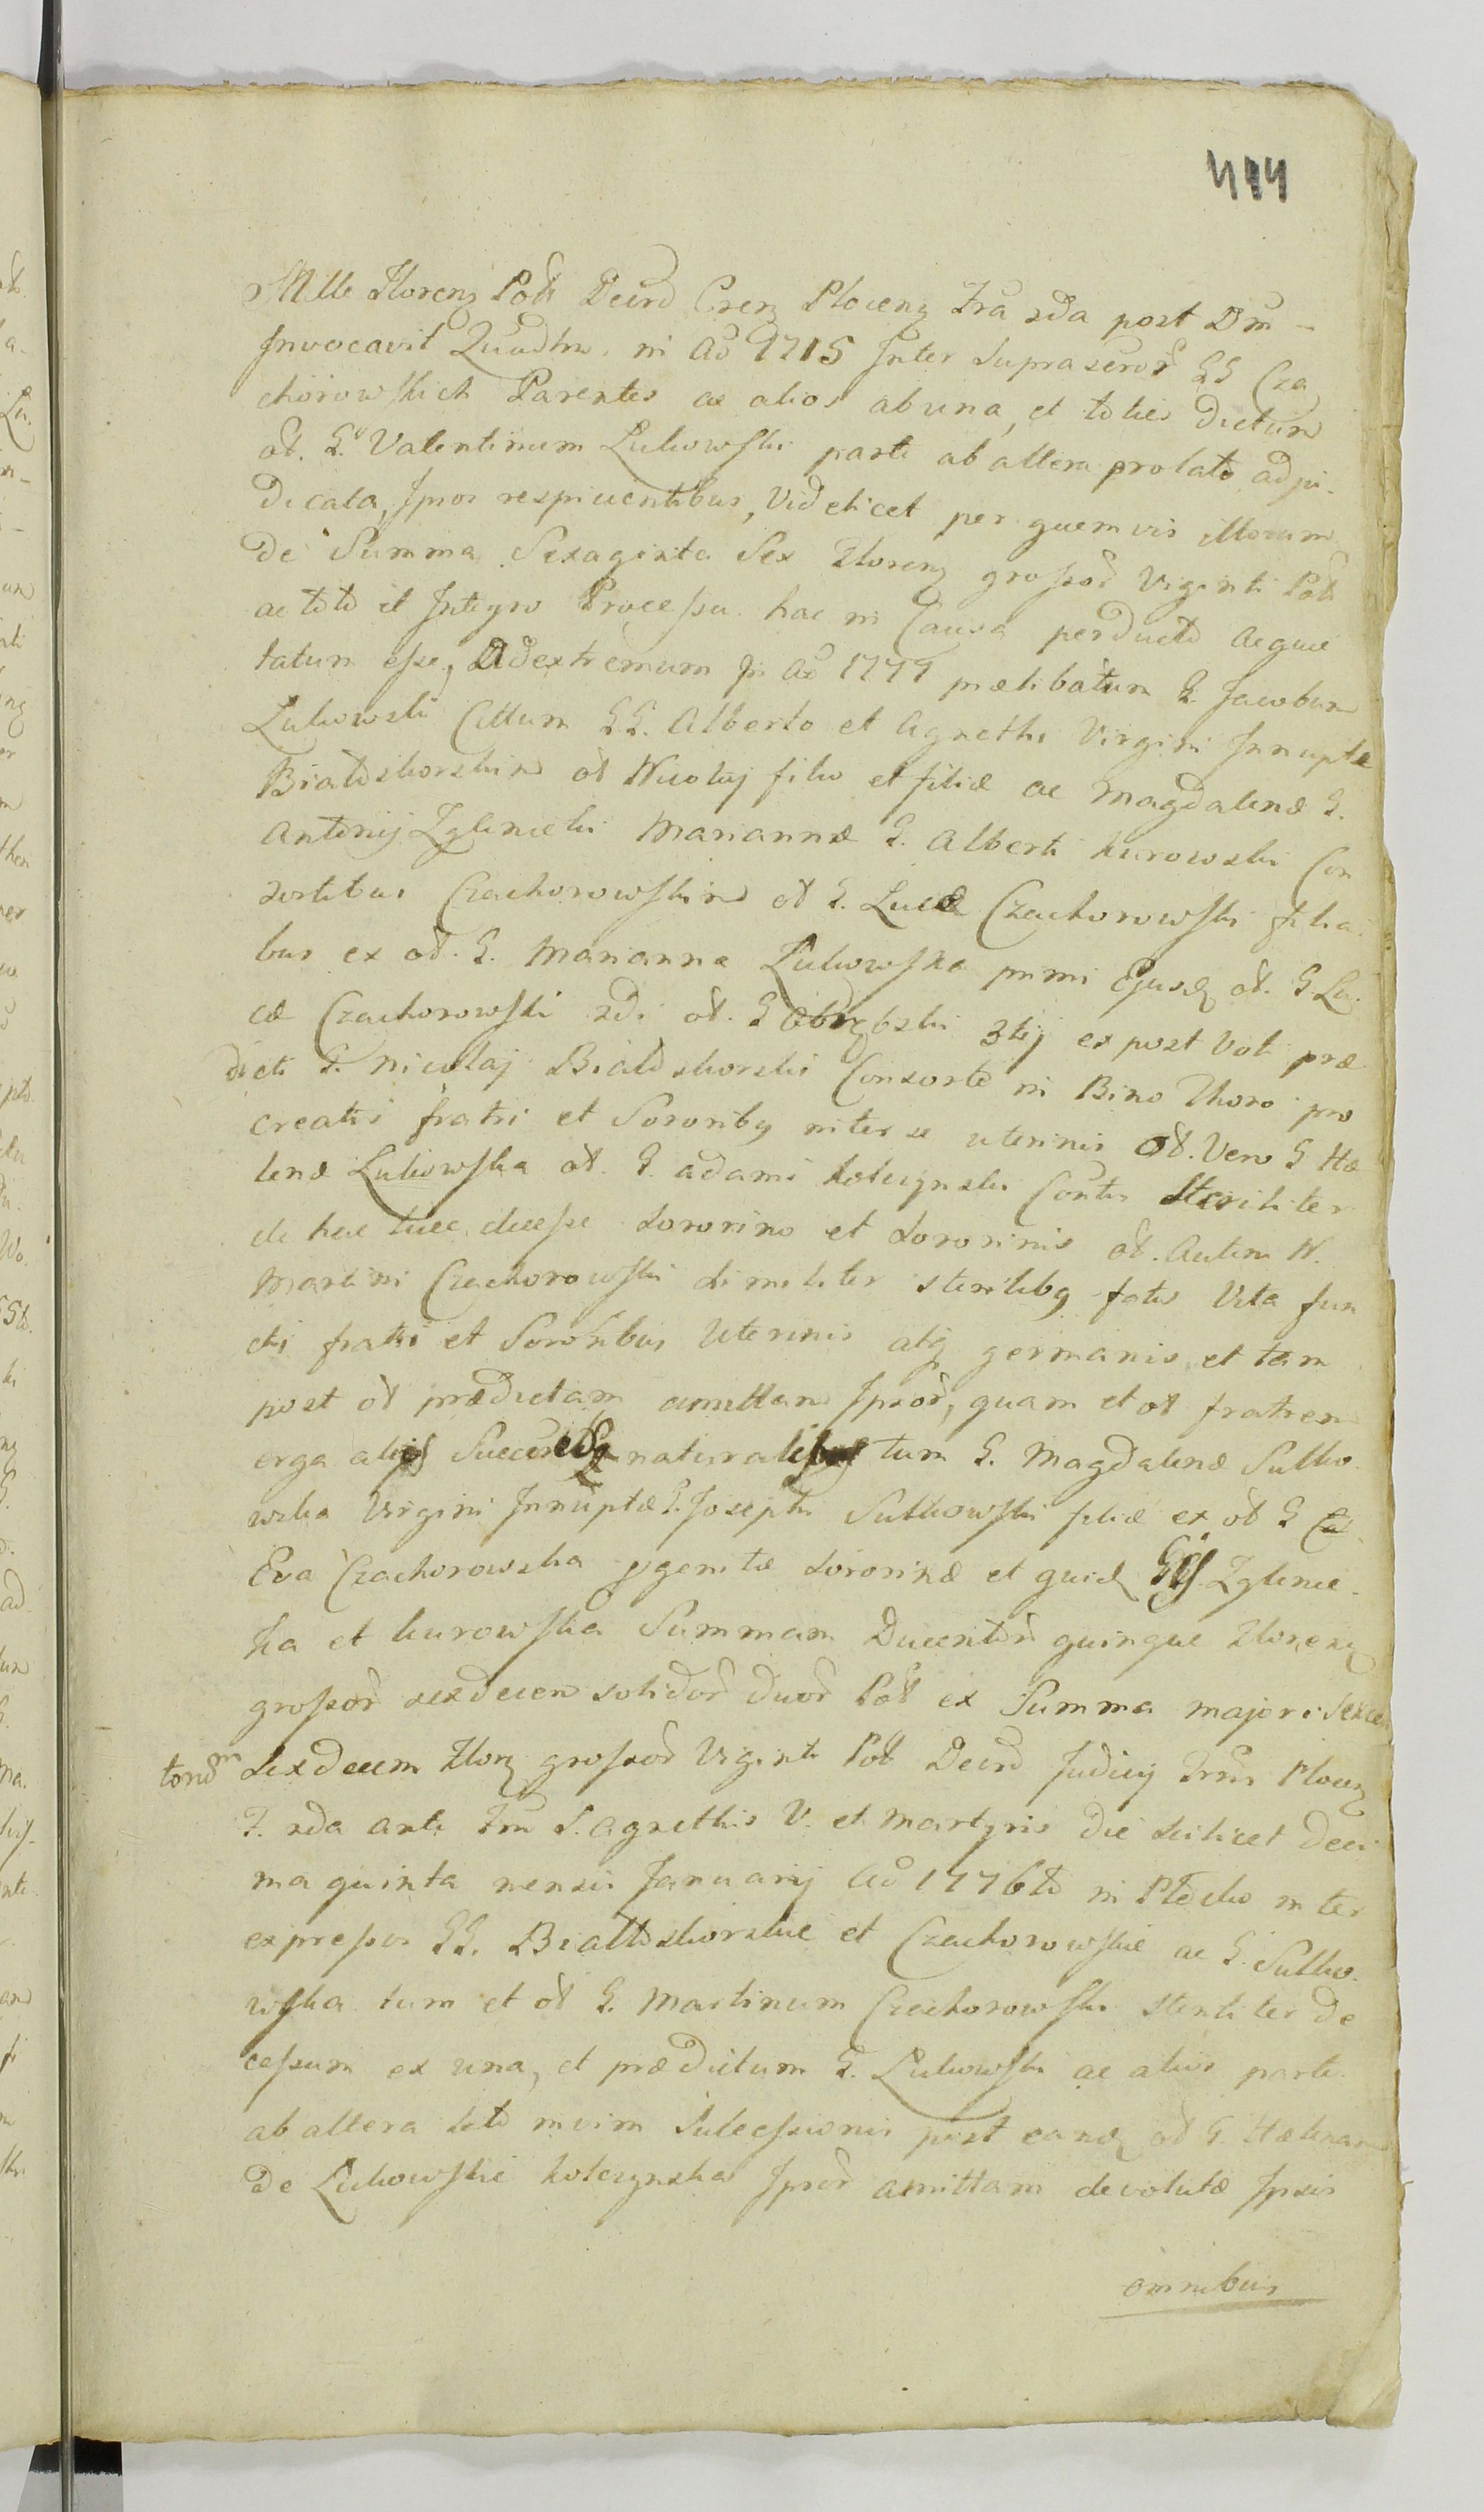 444
Mille Floreng Poḋł Decrō Cren̄ Ploceng Fr̄a 2da post Dm̄ –
Invocavit Quadhn. in Aō 1715 Inter Suprascrōr̄ GG Cza
chorowskich Parentes ac alios ab una, et toties dictum
oł. G. Valentinum Lukowski parte ab altera prolato adju-
dicata, Ipsos respicientibus, Videlicet per quemvis illorum
de Summa Sexaginta Sex Floreng grossoō Viginti Poł
ac toto et Integro Processu hac in Causa perducto aequie
tatum esse, Ad extremum in Aō 1779 prælibatum G. Jacobum
Lukowski Cittum GG. Alberto et Agnethi Virgini Innuptæ
Białoskorskim oł Nicolaj filio et filiæ ac Magdalenæ G.
Antonij Zglinicki Mariannæ G. Alberti Kurowski Con
sortibus Czachorowskim oł G. Lucæ Czachorowski filia-
bus ex oł. G. Marianna Lukowska primi Ejusd oł. G. Lu-
cæ Czachorowski 2di oł. G 3tij ex post Voti præ
dicti G. Nicolaj Białoskorski Consorte in Bino Thoro pro
creatis fratri et Sororibg inter se uterinis oł. Vero G Hæ
lenæ Lukowska oł. G. Adami Koteynski Conts Steriliter
de hac luce decesse Sororino et Sororinis oł. Autem N.
Martini Czachorowski similiter sterilibg fatis Vita fun
cti fratri et Sororibus Uterinis atq germanis et tam
post oł prædictam amittam Ipsoō, quam et oł fratrem
erga alios naturales tum G. Magdalenæ Sulko
wska Virgini Innuptæ G. Josephi Sulkowski filiæ ex oł G
Eva Czachorowska ggenitæ Sororinæ et quid GG Zglinic-
ka et Kurowska Summam Ducentoō quinque Floreng
grossoō sexdecem solidoō duoō Poł ex Summa majori Sexcen
tonōm Sexdecem Flong grossoō Viginti Poł Decrō Judicij Trrīs Ploceng
F. 2da ante Fm̄ S. Agnethis V. et Martyris die scilicet deci
ma quinta mensis Januarij Aō 1776to in Płocko inter
expressos GG. Białłoskorskie et Czachorowskie ac G. Sulko-
wska tum et oł G. Martinum Czachorowski steriliter de
cessum ex una, et prædictum G. Lukowski ac alios parte
ab altera lato in vim Successionis post eand oł G. Hælenam
de Lukowskie Koteynska Ipsoō amittam devolutæ Ipsis
omnibus